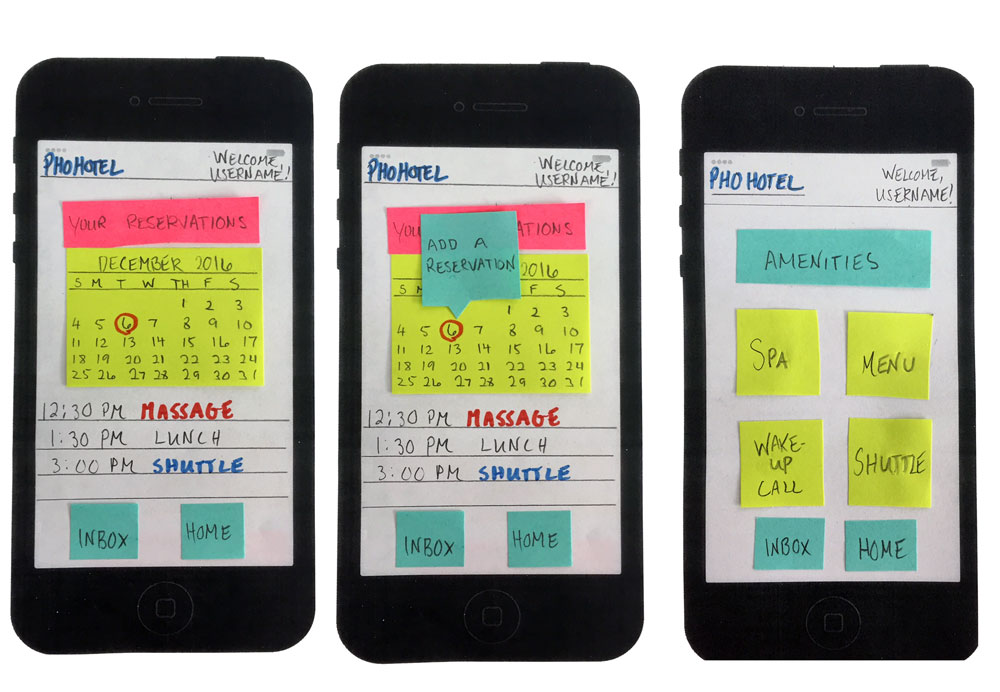 PHO HOTEL
WELCOME,
USERNAME!
YOUR RESERVATIONS
DECEMBER 2016
S M T W TH F S
1 2 3
4 5 6 7 8 9 10
11 12 13 14 15 16 17
18 19 20 21 22 23 24
25 26 27 28 29 30 31
12:30 PM MASSAGE
1:30 PM LUNCH
3:00 PM SHUTTLE
INBOX HOME
PHO HOTEL
WELCOME,
USERNAME!
YOU ATIONS
ADD A
RESERVATION
2016
S M F S
1 2 3
4 5 6 7 8 9 10
11 12 13 14 15 16 17
18 19 20 21 22 23 24
25 26 27 28 29 30 31
12:30 PM MASSAGE
1:30 PM LUNCH
3:00 PM SHUTTLE
INBOX HOME
PHO HOTEL
WELCOME,
USERNAME!
AMENITIES
SPA
MENU
WAKE-
UP
CALL
SHUTTLE
INBOX HOME